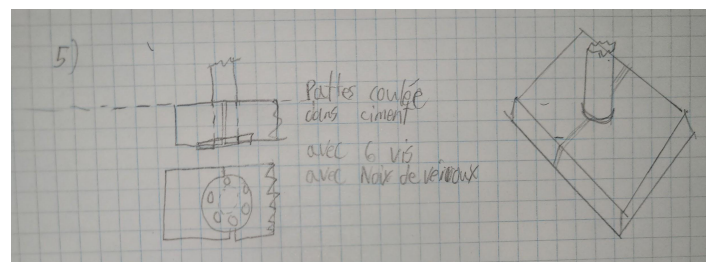 5)
Pattes coulée
dans ciment
avec 6 vis
avec Noix de